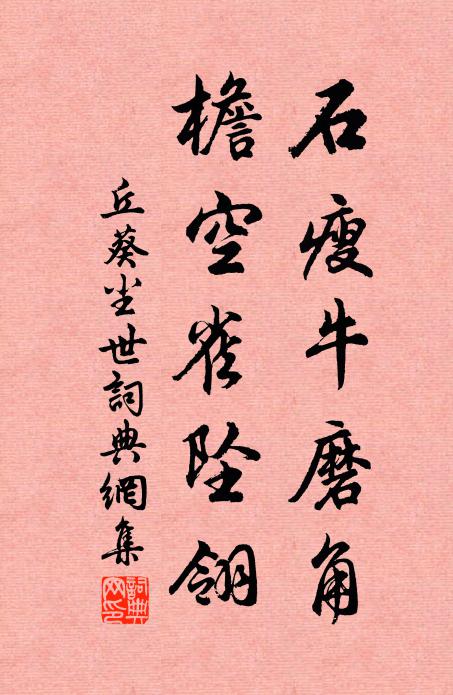 石瘦牛磨角
檐空雀坠翎
丘葵尘世詞典網集
詞典网印